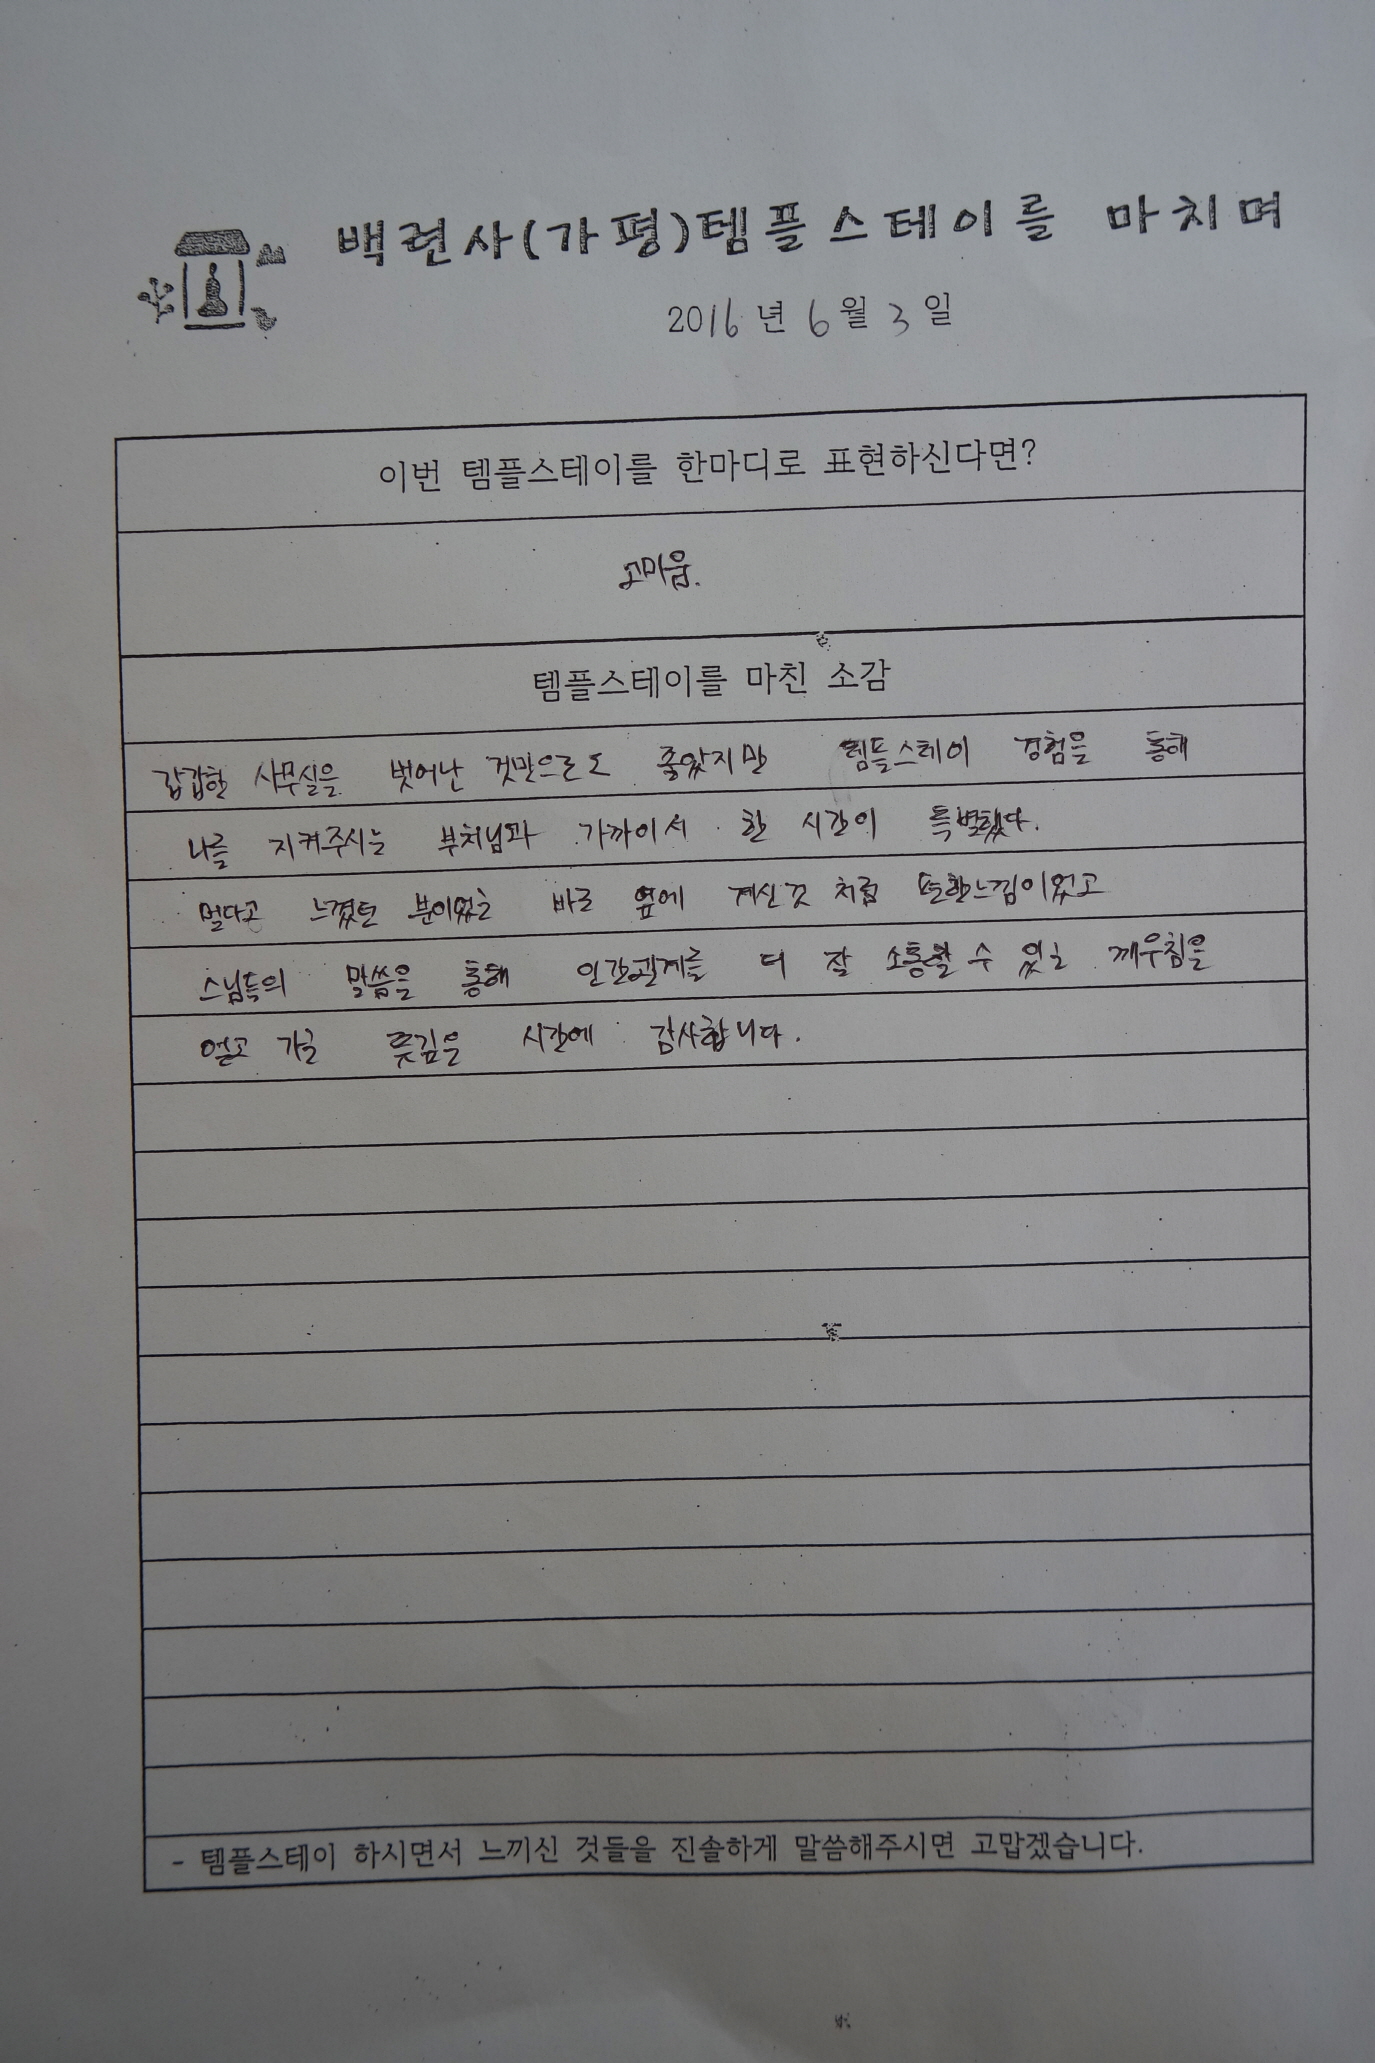 백련사(가평)템플스테이를 마치며
2016년 6월 3일
이번 템플스테이를 한마디로 표현하신다면?
고마움.
템플스테이를 마친 소감
갑갑한 사무실을 벗어난 것만으로도 좋았지만 템플스테이 경험을 통해
나를 지켜주시는 부처님과 가까이서 한 시간이 특별했다.
멀다고 느꼈던 분이었는 바로 옆에 계신것 처럼 또한느낌이었고
스님들의 말씀을 통해 인간관계를 더 잘 소통할 수 있는 깨우침을
얻고 가는 뜻깊은 시간에 감사합니다.
- 템플스테이 하시면서 느끼신 것들을 진솔하게 말씀해주시면 고맙겠습니다.